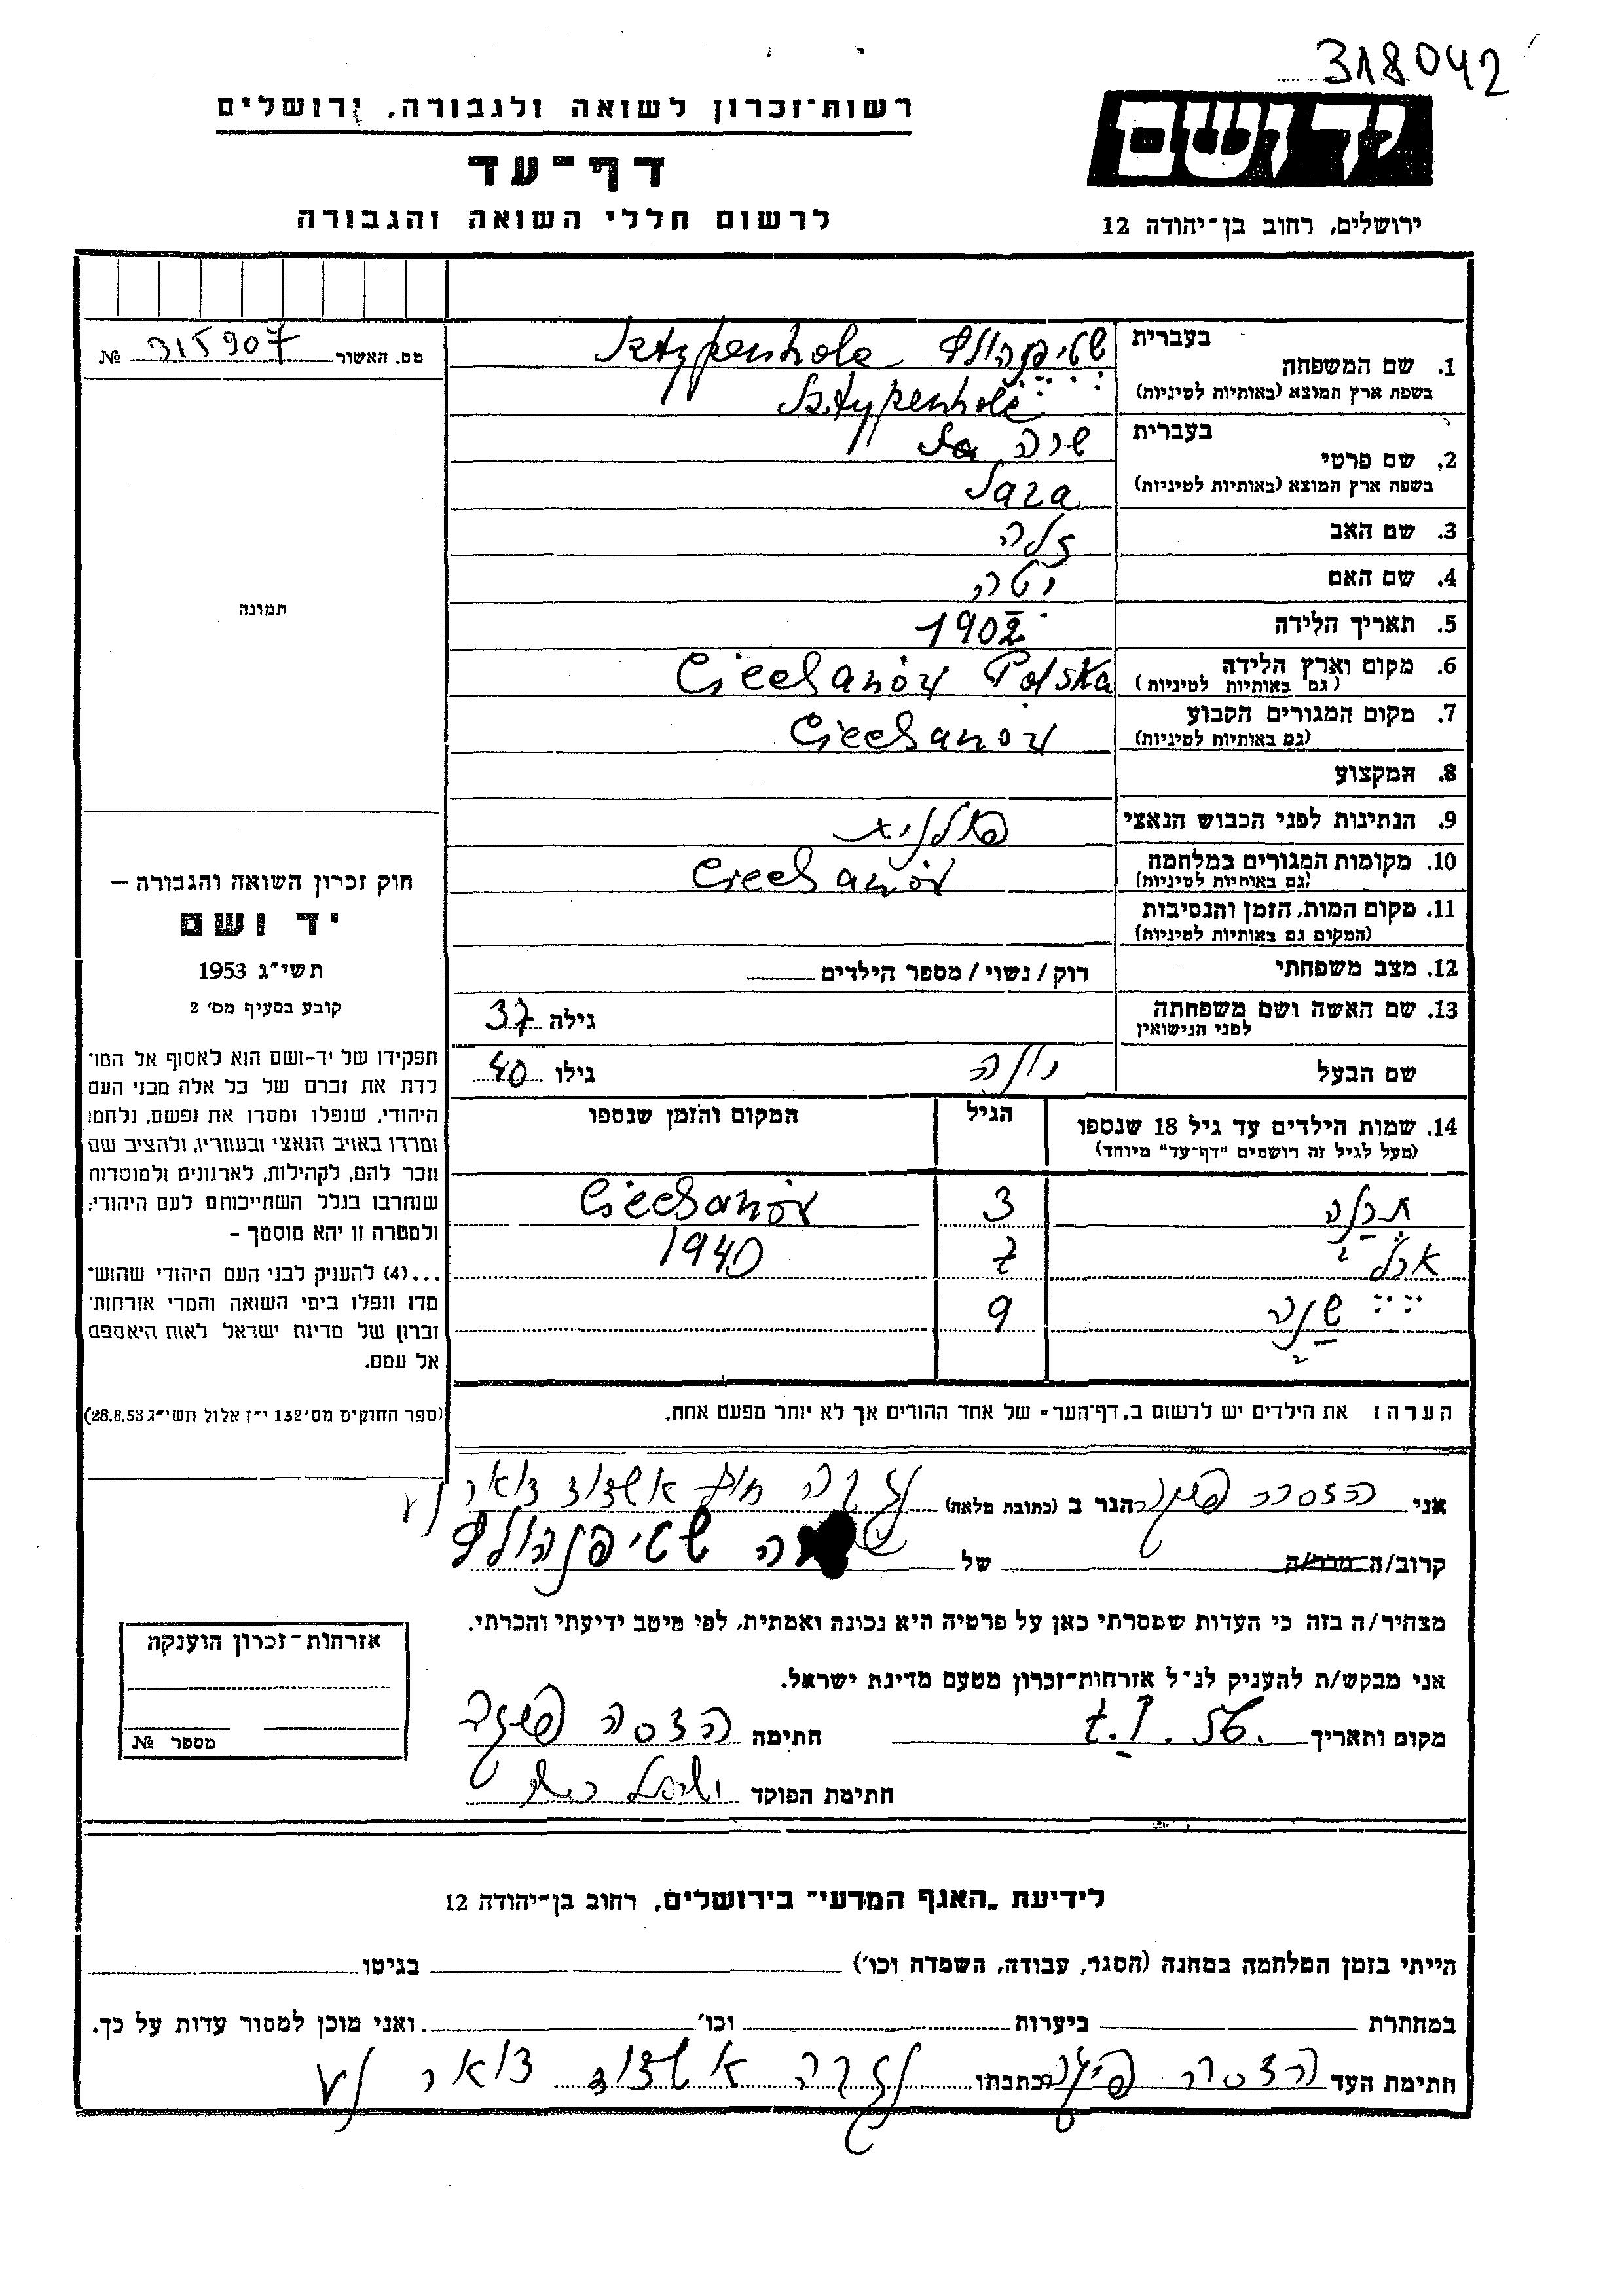 318042
רשות־זכרון לשואה ולגבורה, ירושלים
יד ושם
דף־עד
לרשום חללי השואה והגבורה
ירושלים, רחוב בן־יהודה 12
מס. האשור 315907 №
תמונה
חוק זכרון השואה והגבורה —
יד ושם
תשי״ג 1953
קובע בסעיף מס׳ 2
תפקידו של יד-ושם הוא לאסוף אל המו־
לדת את זכרם של כל אלה מבני העם
היהודי, שנפלו ומסרו את נפשם, נלחמו
ומרדו באויב הנאצי ובעוזריו, ולהציב שם
וזכר להם, לקהילות, לארגונים ולמוסדות
שנחרבו בגלל השתייכותם לעם היהודי;
ולמטרה זו יהא מוסמך —
...(4) להעניק לבני העם היהודי שהוש־
מדו ונפלו בימי השואה והמרי אזרחות־
זכרון של מדינת ישראל לאות היאספם
אל עמם.
(ספר החוקים מס׳ 132 י״ז אלול תשי״ג 28.8.53)
בעברית
1. שם המשפחה שטיפנהולץ Sztypenholc
בשפת ארץ המוצא (באותיות לטיניות) Sztypenholc
בעברית
2. שם פרטי שרה
בשפת ארץ המוצא (באותיות לטיניות) Sara
3. שם האב
4. שם האם יטה
5. תאריך הלידה 1902
6. מקום וארץ הלידה Ciechanów Polska
(גם באותיות לטיניות)
7. מקום המגורים הקבוע Ciechanów
(גם באותיות לטיניות)
8. המקצוע
9. הנתינות לפני הכבוש הנאצי פולנית
10. מקומות המגורים במלחמה Ciechanów
(גם באותיות לטיניות)
11. מקום המות, הזמן והנסיבות
(המקום גם באותיות לטיניות)
12. מצב משפחתי רוק / נשוי / מספר הילדים
13. שם האשה ושם משפחתה גילה 37
לפני הנישואין
שם הבעל גילו 40
14. שמות הילדים עד גיל 18 שנספו הגיל המקום והזמן שנספו
(מעל לגיל זה רושמים "דף-עד" מיוחד)
3 Ciechanów
7 1940
9
הערה: את הילדים יש לרשום ב„דף־העד״ של אחד ההורים אך לא יותר מפעם אחת.
אני הדסה הגר ב (כתובת מלאה)
קרוב/ה מכר/ה של שטיפנהולץ
מצהיר/ה בזה כי העדות שמסרתי כאן על פרטיה היא נכונה ואמתית, לפי מיטב ידיעתי והכרתי.
אני מבקש/ת להעניק לנ״ל אזרחות-זכרון מטעם מדינת ישראל.
מקום ותאריך חתימה הדסה
חתימת הפוקד
אזרחות־זכרון הוענקה
מספר №
לידיעת „האגף המדעי״ בירושלים, רחוב בן־יהודה 12
הייתי בזמן המלחמה במחנה (הסגר, עבודה, השמדה וכו׳) בגיטו
במחתרת ביערות וכו׳ ואני מוכן למסור עדות על כך.
חתימת העד הדסה כתבתו